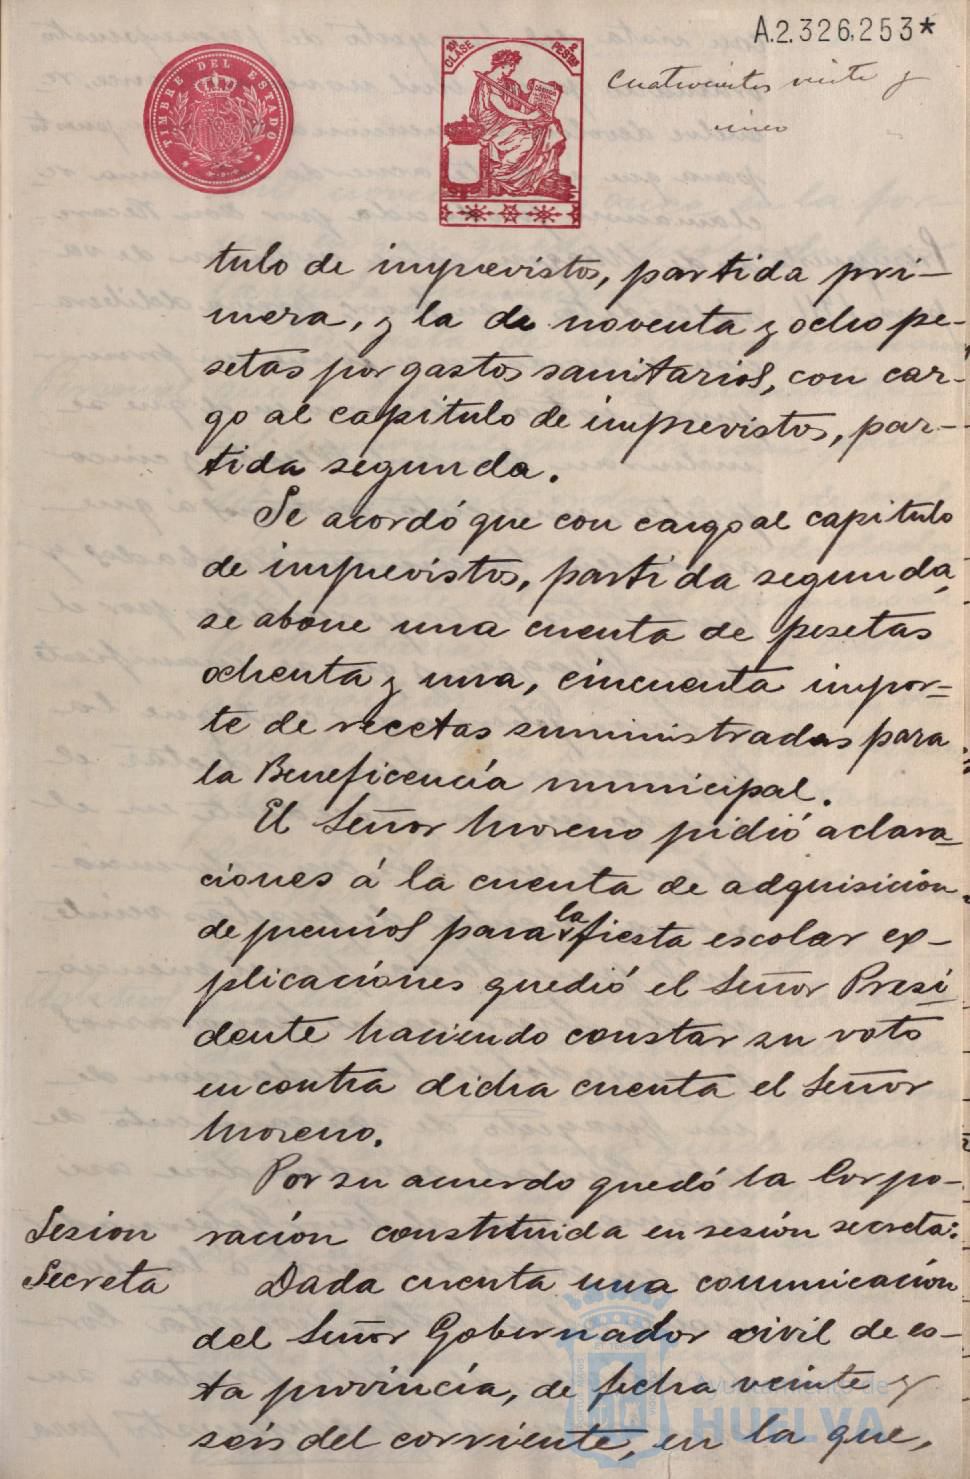 A.2.326.253*
TIMBRE DEL ESTADO
10ª CLASE
2 PESETAS
Cuatrocientos veinte y
cinco
tulo de imprevistos, partida pri-
mera, y la de noventa y ocho pe-
setas por gastos sanitarios, con car-
go al capitulo de imprevistos, par-
tida segunda.
Se acordó que con cargo al capitulo
de imprevistos, partida segunda,
se abone una cuenta de pesetas
ochenta y una, cincuenta impor-
te de recetas suministradas para
la Beneficencia municipal.
El Señor Moreno pidió aclara-
ciones á la cuenta de adquisición
de premios para la fiesta escolar ex-
plicaciones que dió el Señor Presi-
dente haciendo constar su voto
en contra dicha cuenta el Señor
Moreno.
Por su acuerdo quedó la Corpo-
Sesion
ración constituida en sesión secreta:
Secreta
Dada cuenta una comunicación
del Señor Gobernador civil de es-
ta provincia, de fecha veinte y
seis del corriente, en la que,
Ayuntamiento de
HUELVA